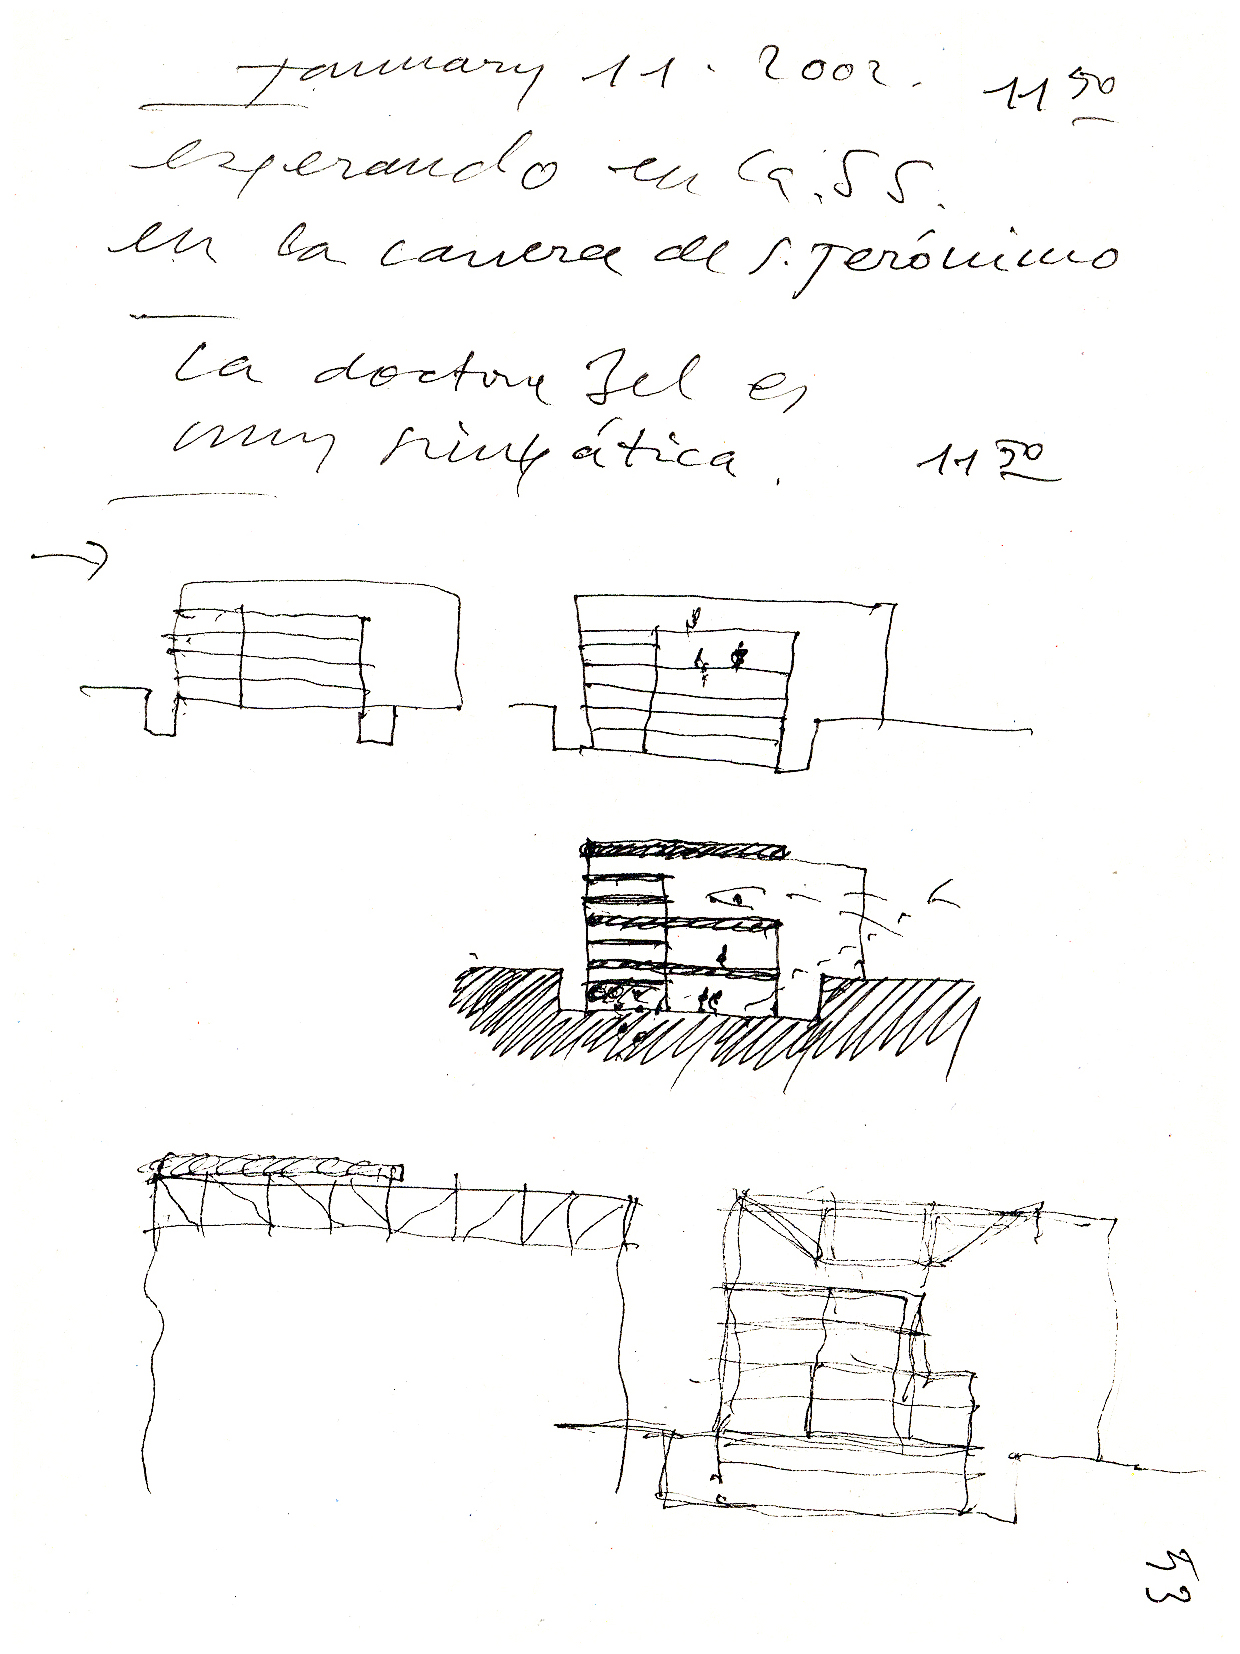 January 11. 2002. 11 50
esperando en la .SS.
en la carrera de S. Jerónimo
la doctora Gel es
muy simpática. 11 50
53